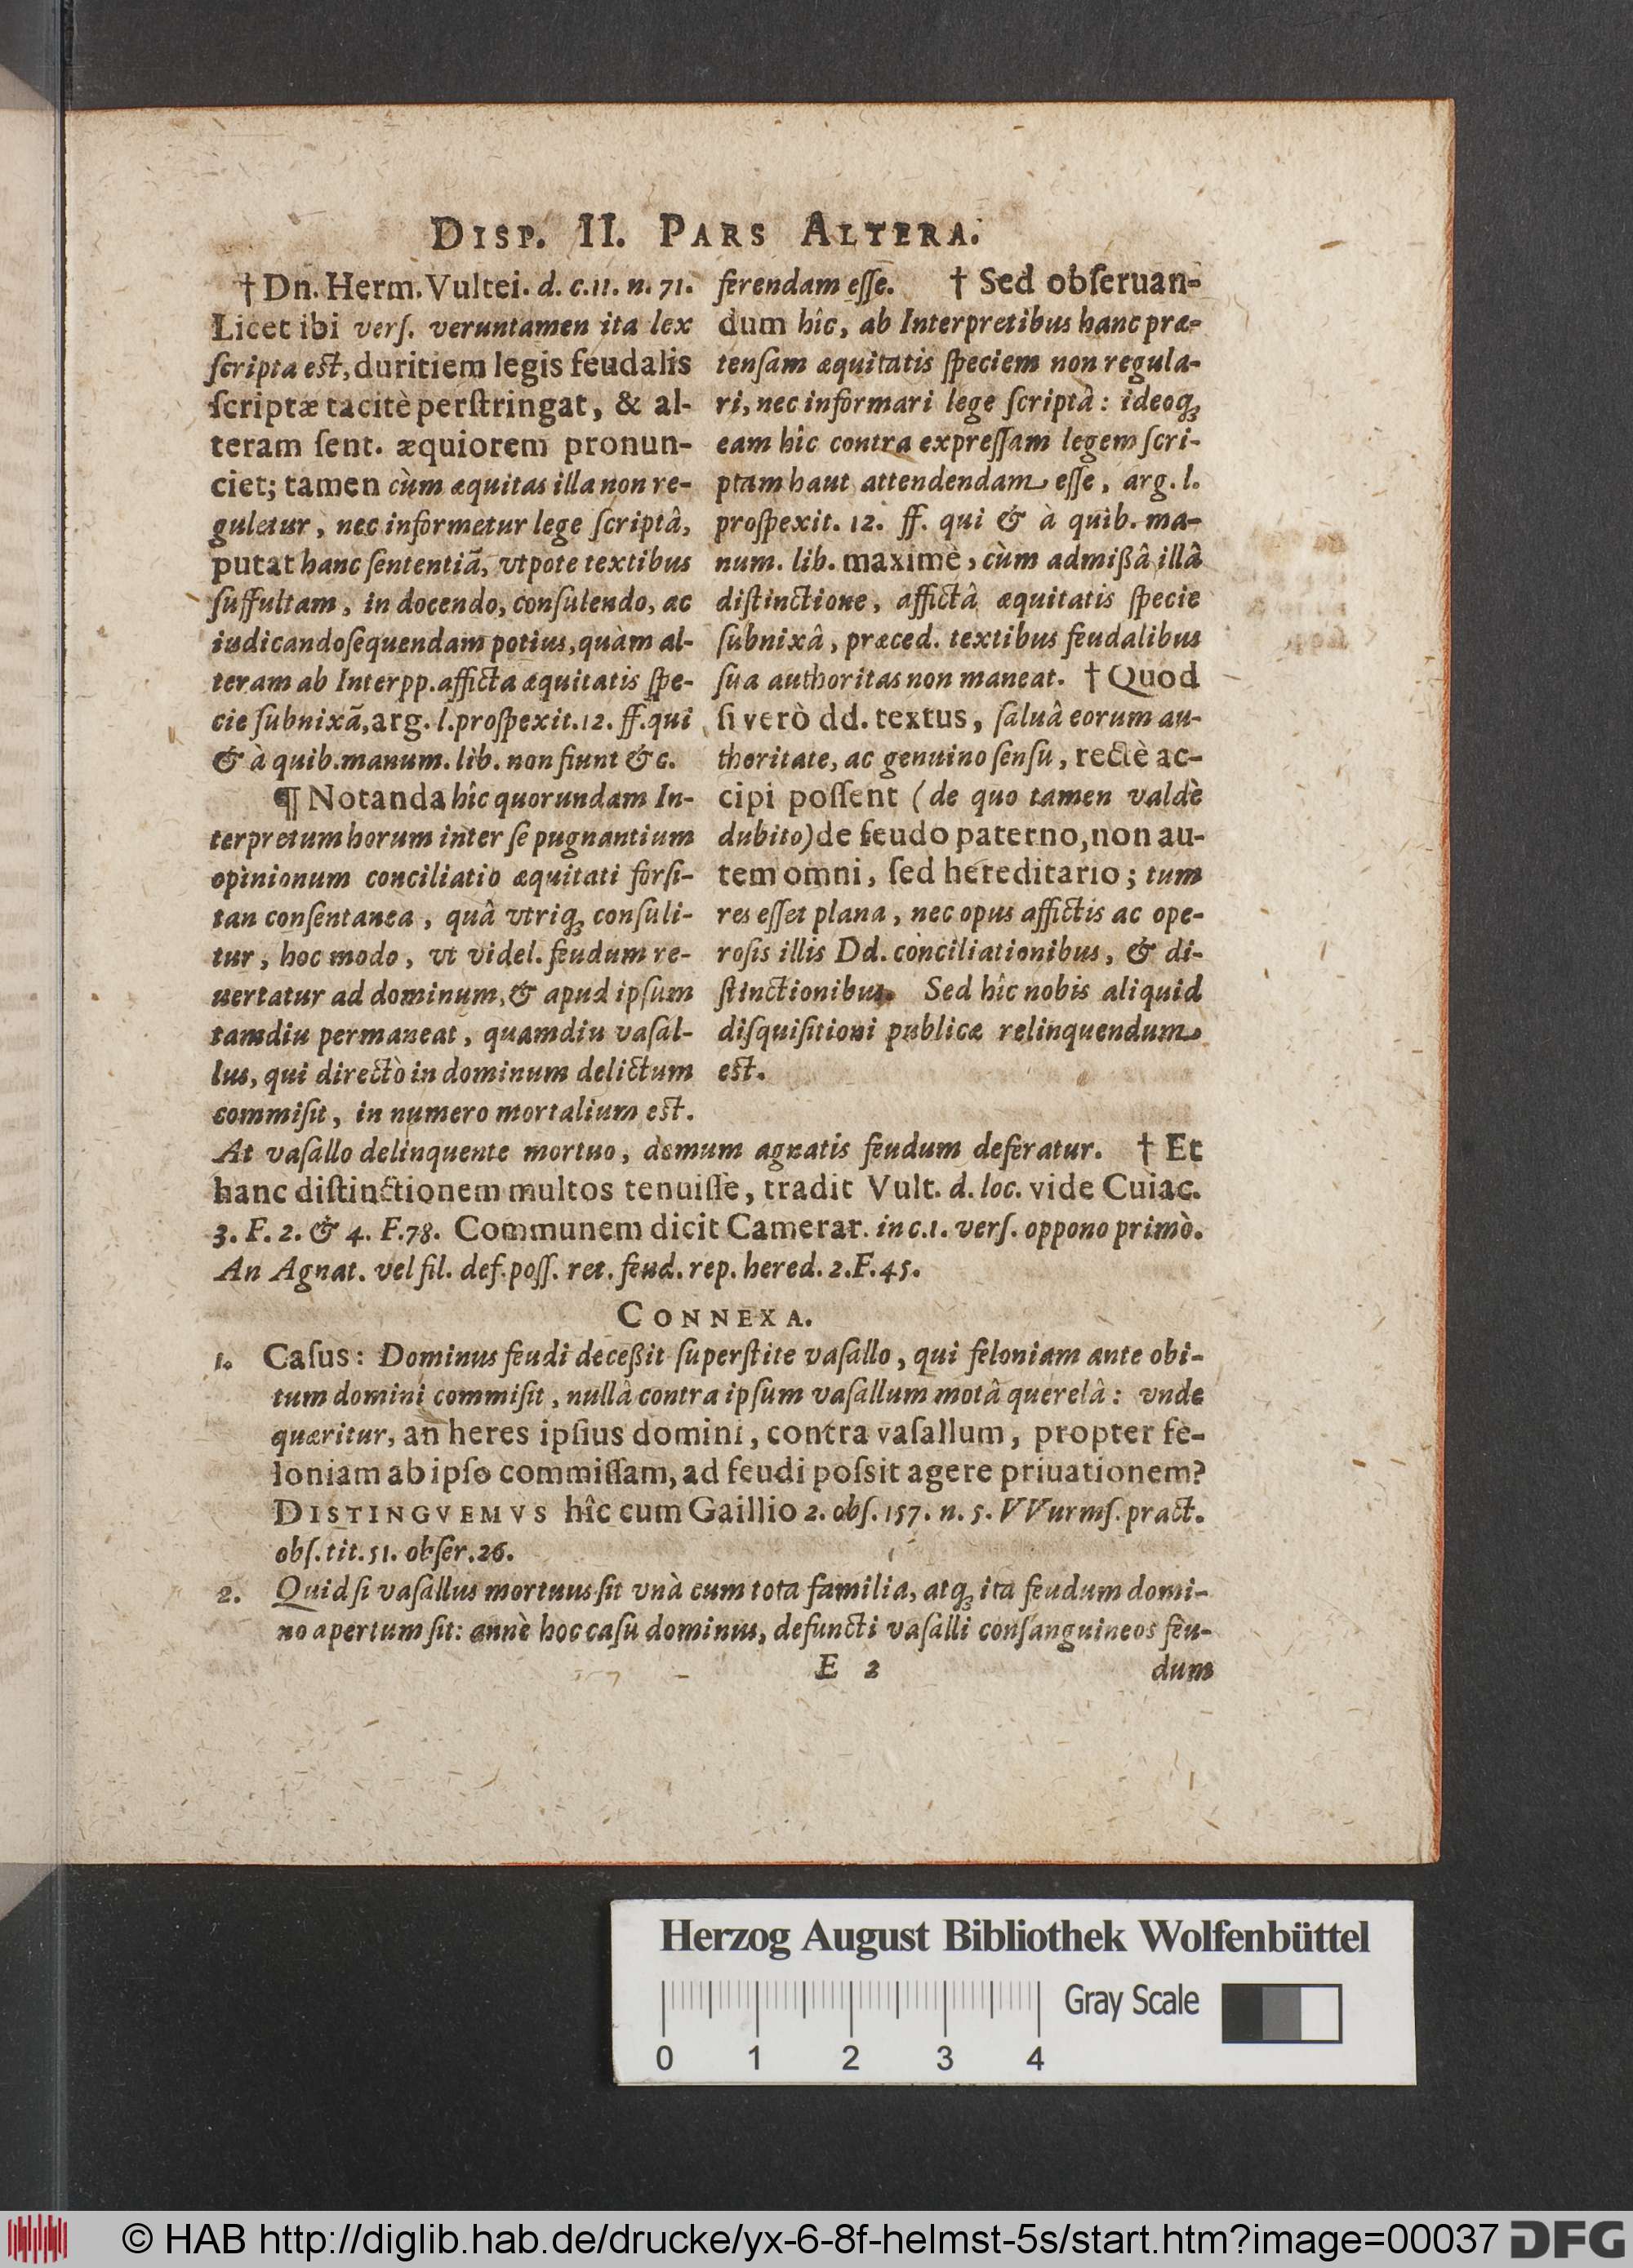 DISP. II. PARS ALTERA.
† Dn. Herm. Vultei. d. c. 11. n. 71.
Licet ibi verſ. veruntamen ita lex
ſcripta est, duritiem legis feudalis
ſcriptæ tacitè perſtringat, & al-
teram ſent. æquiorem pronun-
ciet; tamen cùm æquitas illa non re-
guletur, nec informetur lege ſcriptâ,
putat hanc ſententiã, vtpote textibus
ſuffultam, in docendo, conſulendo, ac
iudicando ſequendam potius, quàm al-
teram ab Interpp. afficta æquitatis ſpe-
cie ſubnixã, arg. l. proſpexit. 12. ff. qui
& à quib. manum. lib. non fiunt &c.
¶ Notanda hîc quorundam In-
terpretum horum inter ſe pugnantium
opinionum conciliatio æquitati forſi-
tan conſentanea, quâ vtriq; conſuli-
tur, hoc modo, vt videl. feudum re-
uertatur ad dominum, & apud ipſum
tamdiu permaneat, quamdiu vaſal-
lus, qui directò in dominum delictum
commiſit, in numero mortalium est.
ferendam eſſe. † Sed obſeruan-
dum hîc, ab Interpretibus hanc præ-
tenſam æquitatis ſpeciem non regula-
ri, nec informari lege ſcriptâ: ideoq;
eam hîc contra expreſſam legem ſcri-
ptam haut attendendam eſſe, arg. l.
proſpexit. 12. ff. qui & à quib. ma-
num. lib. maximè, cùm admißâ illâ
diſtinctione, affictâ æquitatis ſpecie
ſubnixâ, præced. textibus feudalibus
ſua authoritas non maneat. † Quod
ſi verò dd. textus, ſaluâ eorum au-
thoritate, ac genuino ſenſu, rectè ac-
cipi poſſent (de quo tamen valdè
dubito) de feudo paterno, non au-
tem omni, ſed hereditario; tum
res eſſet plana, nec opus affictis ac ope-
roſis illis Dd. conciliationibus, & di-
ſtinctionibus. Sed hîc nobis aliquid
diſquiſitioni publicæ relinquendum
est.
At vaſallo delinquente mortuo, demum agnatis feudum deferatur. † Et
hanc diſtinctionem multos tenuiſſe, tradit Vult. d. loc. vide Cuiac.
3. F. 2. & 4. F. 78. Communem dicit Camerar. in c. 1. verſ. oppono primò.
An Agnat. vel fil. def. poſſ. ret. feud. rep. hered. 2. F. 45.
CONNEXA.
1. Caſus: Dominus feudi deceßit ſuperſtite vaſallo, qui feloniam ante obi-
tum domini commiſit, nullâ contra ipſum vaſallum motâ querelâ: vnde
quæritur, an heres ipſius domini, contra vaſallum, propter fe-
loniam ab ipſo commiſſam, ad feudi poſsit agere priuationem?
DISTINGVEMVS hîc cum Gaillio 2. obſ. 157. n. 5. VVurmſ. pract.
obſ. tit. 51. obſer. 26.
2. Quid ſi vaſallus mortuus ſit vnà cum tota familia, atq; ita feudum domi-
no apertum ſit: annè hoc caſu dominus, defuncti vaſalli conſanguineos feu-
E 2 dum
Herzog August Bibliothek Wolfenbüttel
Gray Scale
0 1 2 3 4
© HAB http://diglib.hab.de/drucke/yx-6-8f-helmst-5s/start.htm?image=00037 DFG